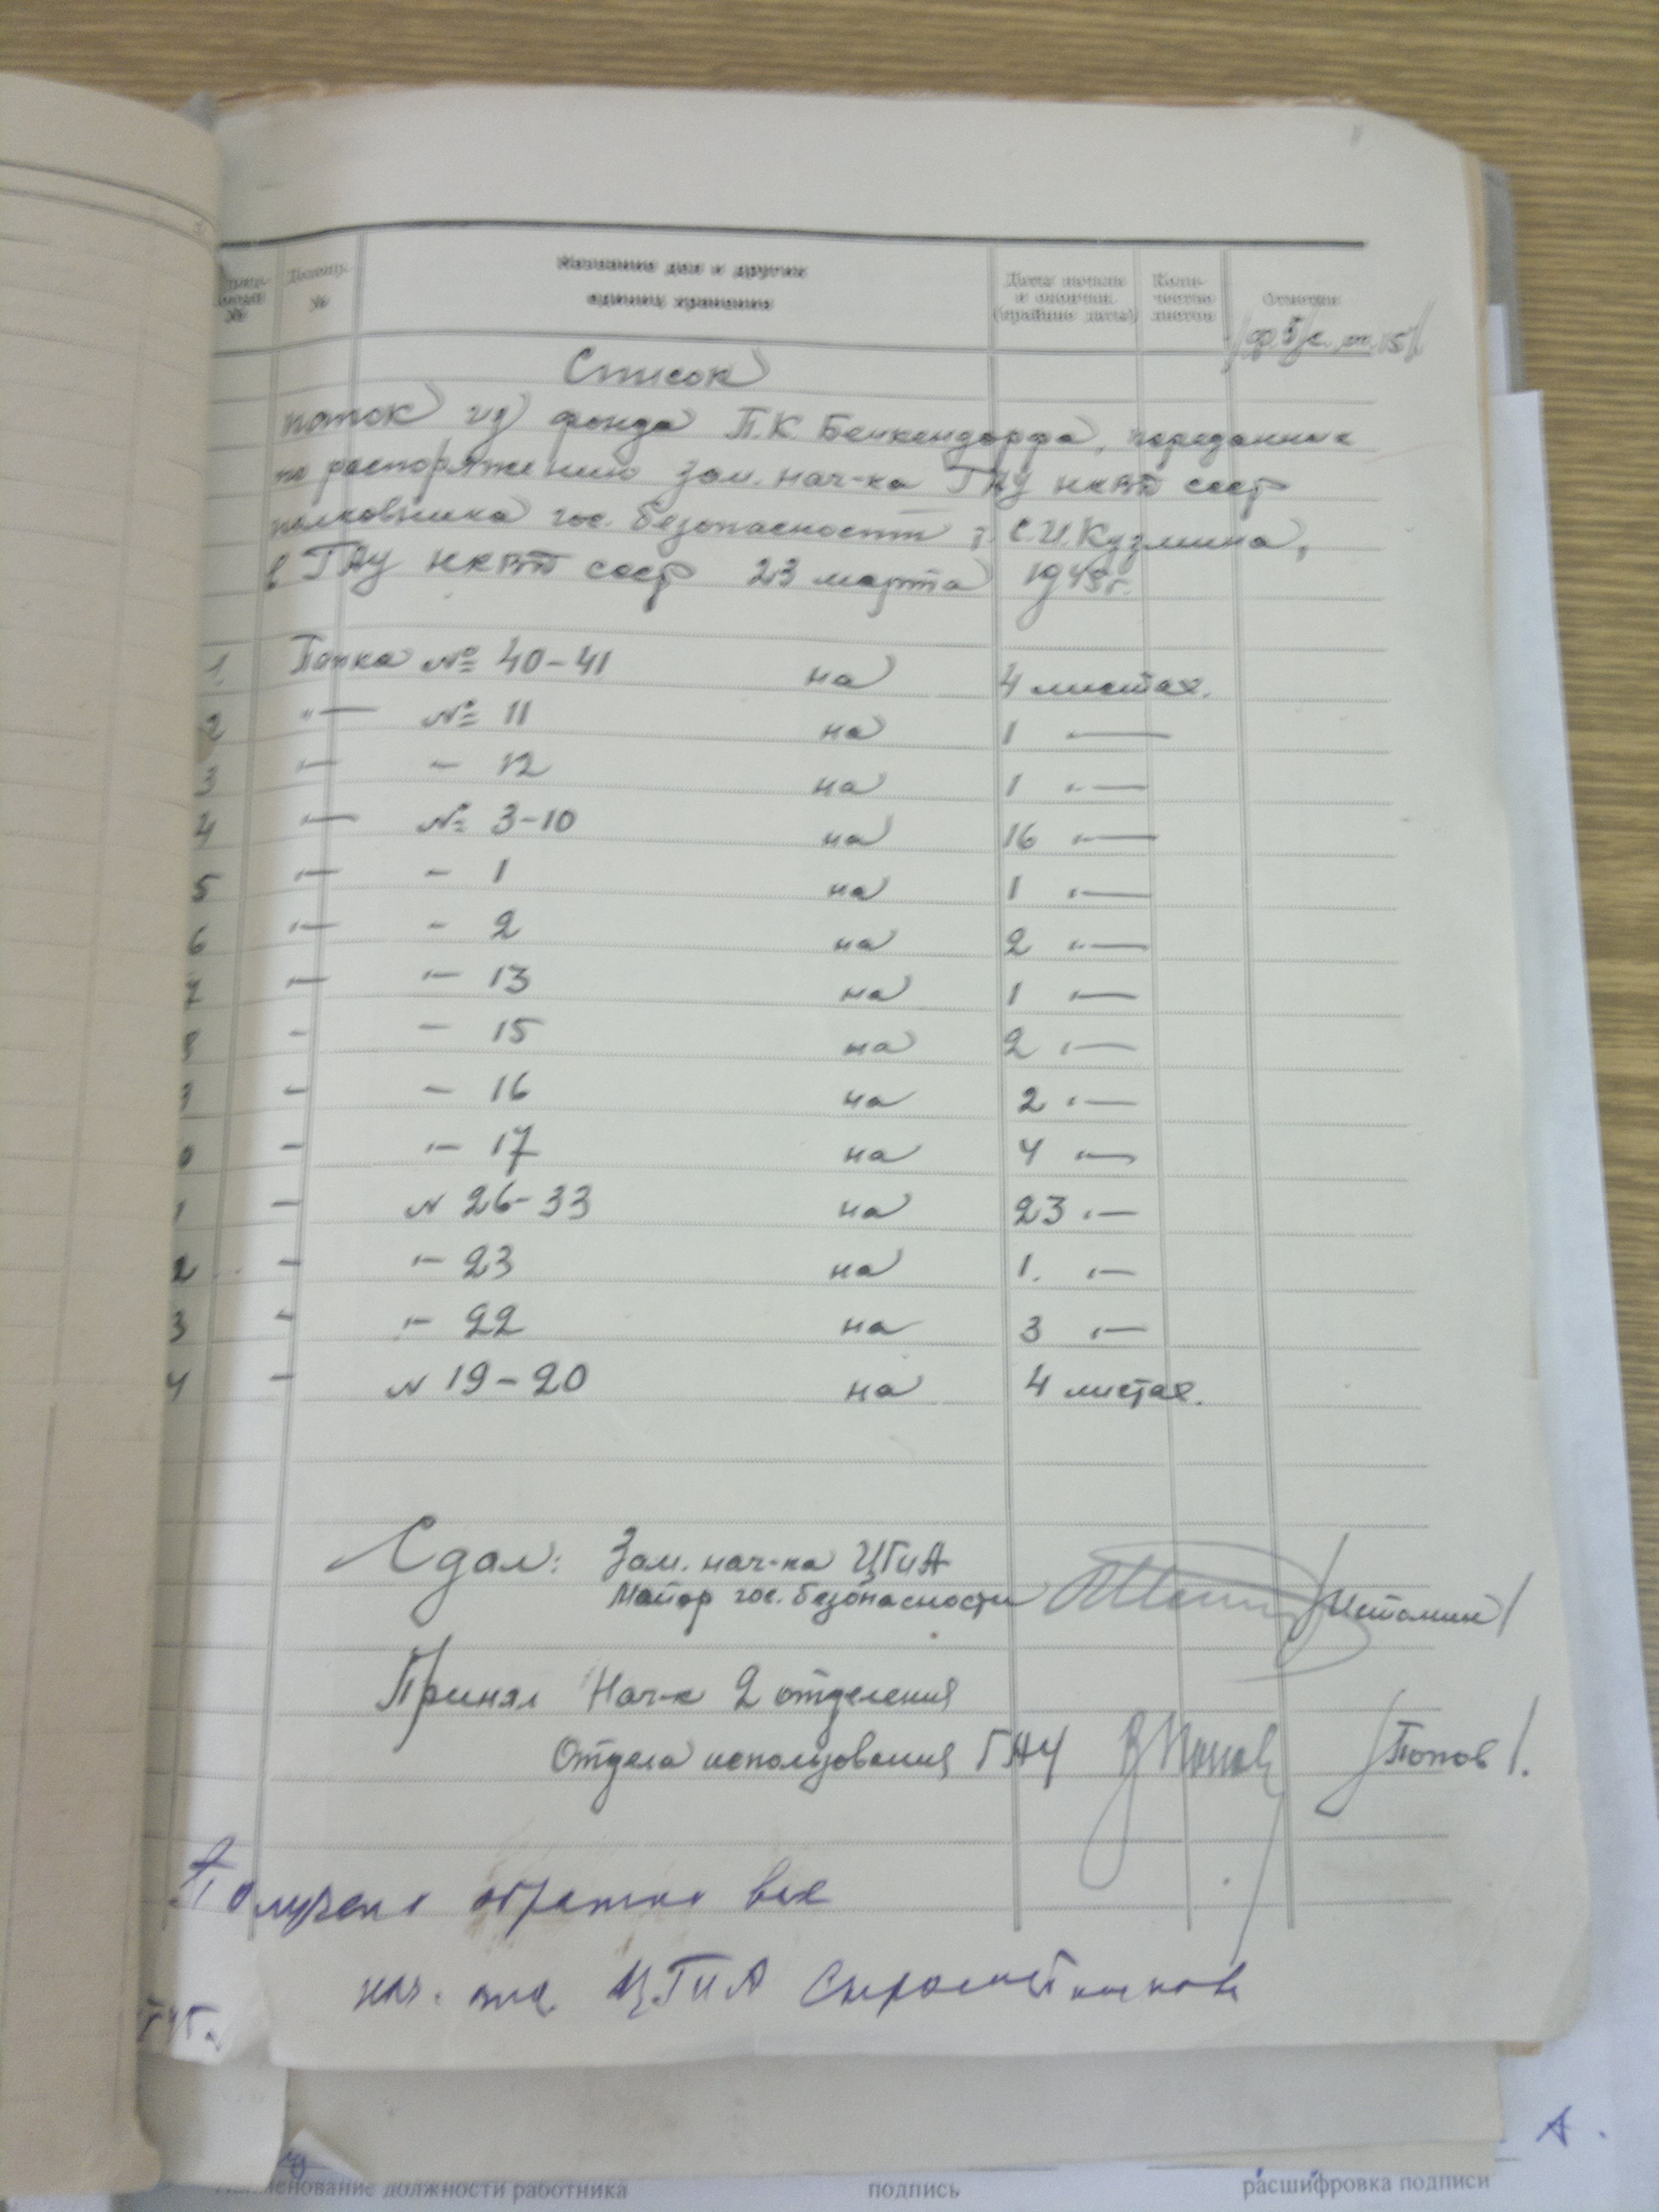 Делопр. №
Название дел и других
единиц хранения
Даты начала
и окончан.
(крайние даты)
Коли-
чество
листов
Отметки
Список
папок из фонда П.К. Бенкендорфа, переданных
по распоряжению зам. нач-ка ГАУ НКВД СССР
полковника гос. безопасности т. С.И. Кузмина,
в ГАУ НКВД СССР 23 марта
1 Папка № 40-41 на 4 листах.
2 "— № 11 на 1 —
3 "— — 12 на 1 "—
4 "— № 3-10 на 16 "—
5 "— — 1 на 1 "—
6 "— — 2 на 2 "—
7 "— "— 13 на 1 "—
— — 15 на 2 "—
— — 16 на 2 "—
0 — "— 17 на 4 "—
1 — № 26-33 на 23 "—
2 — "— 23 на 1. "—
3 — "— 22 на 3 "—
4 — № 19-20 на 4 листах.
Сдал: Зам. нач-ка ЦГИА
Майор гос. безопасности /Истомин/
Принял Нач-к 2 отделения
Отдела использования ГАУ /Попов/.
Получено обратно все
нач. отд. ЦГИА
А.
наименование должности работника подпись расшифровка подписи